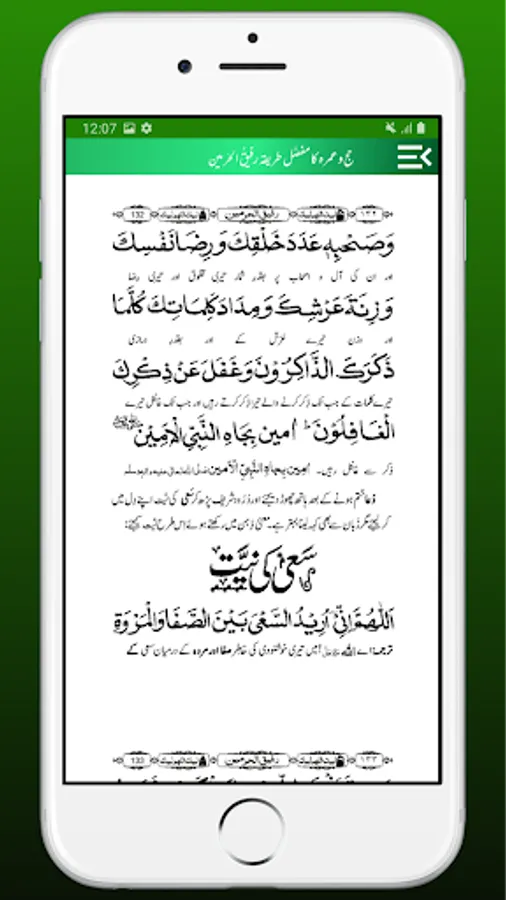 12:07
حج و عمرہ کا مفصّل طریقہ رفیقُ الحرمین
132 رفیق الحرمین ۱۳۲
وَصَحْبِهٖ عَدَدَ خَلْقِكَ وَرِضَا نَفْسِكَ
اور ان کی آل و اصحاب پر بقدر شمار تیری مخلوق اور تیری رضا
وَزِنَةَ عَرْشِكَ وَمِدَادَ كَلِمَاتِكَ كُلَّمَا
اور وزن تیرے عرش کے اور بقدر درازی
ذَكَرَكَ الذَّاكِرُوْنَ وَغَفَلَ عَنْ ذِكْرِكَ
تیرے کلمات کے جب تک ذکر کرنے والے تیرا ذکر کرتے رہیں اور جب تک غافل تیرے
الْغَافِلُوْنَ ط اٰمِين بِجَاهِ النَّبِيِّ الْاَمِيْن ﷺ
ذکر سے غافل رہیں۔ اٰمِين بِجَاهِ النَّبِيِّ الْاَمِيْن صلی اللہ تعالیٰ علیہ والہ وسلم
دُعا ختم ہونے کے بعد ہاتھ چھوڑ دیجئے اور دُرود شریف پڑھ کر سَعْی کی نیّت اپنے دل میں
کر لیجئے مگر زبان سے بھی کہہ لینا بہتر ہے۔ معنیٰ ذہن میں رکھتے ہوئے اِس طرح نیّت کیجئے:
سَعْی کی نیَّت
اَللّٰهُمَّ اِنِّيْ اُرِيْدُ السَّعْيَ بَيْنَ الصَّفَا وَالْمَرْوَةِ
ترجمہ: اے اللہ! میں تیری خوشنودی کی خاطر صفا اور مروہ کے درمیان سعی کے
133 رفیق الحرمین ۱۳۳